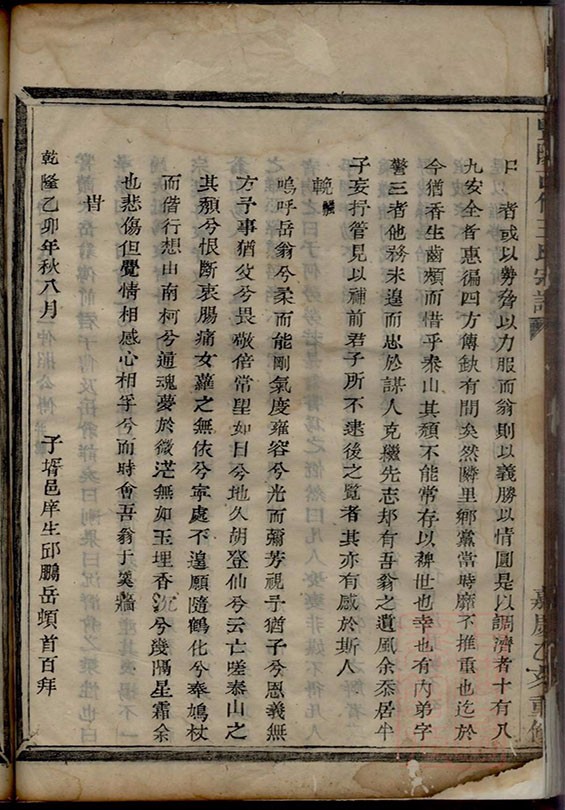 者或以勢脅以力服而翁則以義勝以情圓是以調濟者十有八
九安全者惠徧四方傳缺有間矣然隣里鄉黨當時靡不推重也迄於
今猶香生齒頰而惜乎泰山其頹不能常存以裨世也幸也有內弟字
譽三者他務未遑而忠於謀人克繼先志却有吾翁之遺風余忝居半
子妄抒管見以補前君子所不逮後之覧者其亦有感於斯人
輓
嗚呼岳翁兮柔而能剛氣度雍容兮光而彌芳視予猶子兮恩義無
方予事猶父兮畏敬倍常望如日兮地久胡登仙兮云亡嗟泰山之
其頹兮恨斷衷腸痛女蘿之無依兮寧處不遑願隨鶴化兮奉鳩杖
而偕行想由南柯兮通魂夢於微茫無如玉埋香沉兮幾隔星霜余
也悲傷但覺情相感心相孚兮而時會吾翁于羹牆
旹
乾隆乙卯年秋八月 子壻邑庠生邱鵬岳頓首百拜
王氏宗譜
嘉慶乙亥重修